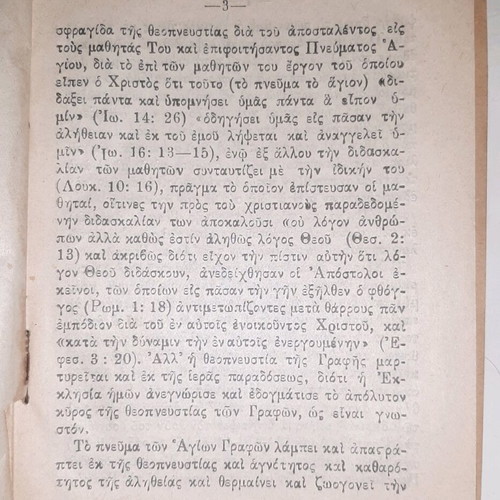 —3—
σφραγίδα τῆς θεοπνευστίας διὰ τοῦ ἀποσταλέντος εἰς
τοὺς μαθητάς Του καὶ ἐπιφοιτήσαντος Πνεύματος Ἁ-
γίου, διὰ τὸ ἐπὶ τῶν μαθητῶν του ἔργον τοῦ ὁποίου
εἶπεν ὁ Χριστὸς ὅτι τοῦτο (τὸ πνεῦμα τὸ ἅγιον) «δι-
δάξει πάντα καὶ ὑπομνήσει ὑμᾶς πάντα ἃ εἶπον ὑ-
μῖν» (Ἰω. 14: 26) «ὁδηγήσει ὑμᾶς εἰς πᾶσαν τὴν
ἀλήθειαν καὶ ἐκ τοῦ ἐμοῦ λήψεται καὶ ἀναγγελεῖ ὑ-
μῖν» (Ἰω. 16: 13—15), ἐνῷ ἐξ ἄλλου τὴν διδασκα-
λίαν τῶν μαθητῶν συνταυτίζει μὲ τὴν ἰδικήν του
(Λουκ. 10: 16), πρᾶγμα τὸ ὁποῖον ἐπίστευσαν οἱ μα-
θηταί, οἵτινες τὴν πρὸς τοὺς χριστιανοὺς παραδεδομέ-
νην διδασκαλίαν των ἀποκαλοῦσι «οὐ λόγον ἀνθρώ-
πων ἀλλὰ καθὼς ἐστὶν ἀληθῶς λόγος Θεοῦ (Θεσ. 2:
13) καὶ ἀκριβῶς διότι εἶχον τὴν πίστιν αὐτὴν ὅτι λό-
γον Θεοῦ διδάσκουν, ἀνεδείχθησαν οἱ Ἀπόστολοι ἐ-
κεῖνοι, τῶν ὁποίων εἰς πᾶσαν τὴν γῆν ἐξῆλθεν ὁ φθόγ-
γος (Ρωμ. 1: 18) ἀντιμετωπίζοντες μετὰ θάρρους πᾶν
ἐμπόδιον διὰ τοῦ ἐν αὐτοῖς ἐνοικοῦντος Χριστοῦ, καὶ
«κατὰ τὴν δύναμιν τὴν ἐν αὐτοῖς ἐνεργουμένην» (Ἐ-
φεσ. 3 : 20). Ἀλλ' ἡ θεοπνευστία τῆς Γραφῆς μαρ-
τυρεῖται καὶ ἐκ τῆς ἱερᾶς παραδόσεως, διότι ἡ Ἐκ-
κλησία ἡμῶν ἀνεγνώρισε καὶ ἐδογμάτισε τὸ ἀπόλυτον
κῦρος τῆς θεοπνευστίας τῶν Γραφῶν, ὡς εἶναι γνω-
στόν.
Τὸ πνεῦμα τῶν Ἁγίων Γραφῶν λάμπει καὶ ἀπαστρά-
πτει ἐκ τῆς θεοπνευστίας καὶ ἁγνότητος καὶ καθαρό-
τητος τῆς ἀληθείας καὶ θερμαίνει καὶ ζωογονεῖ τὴν